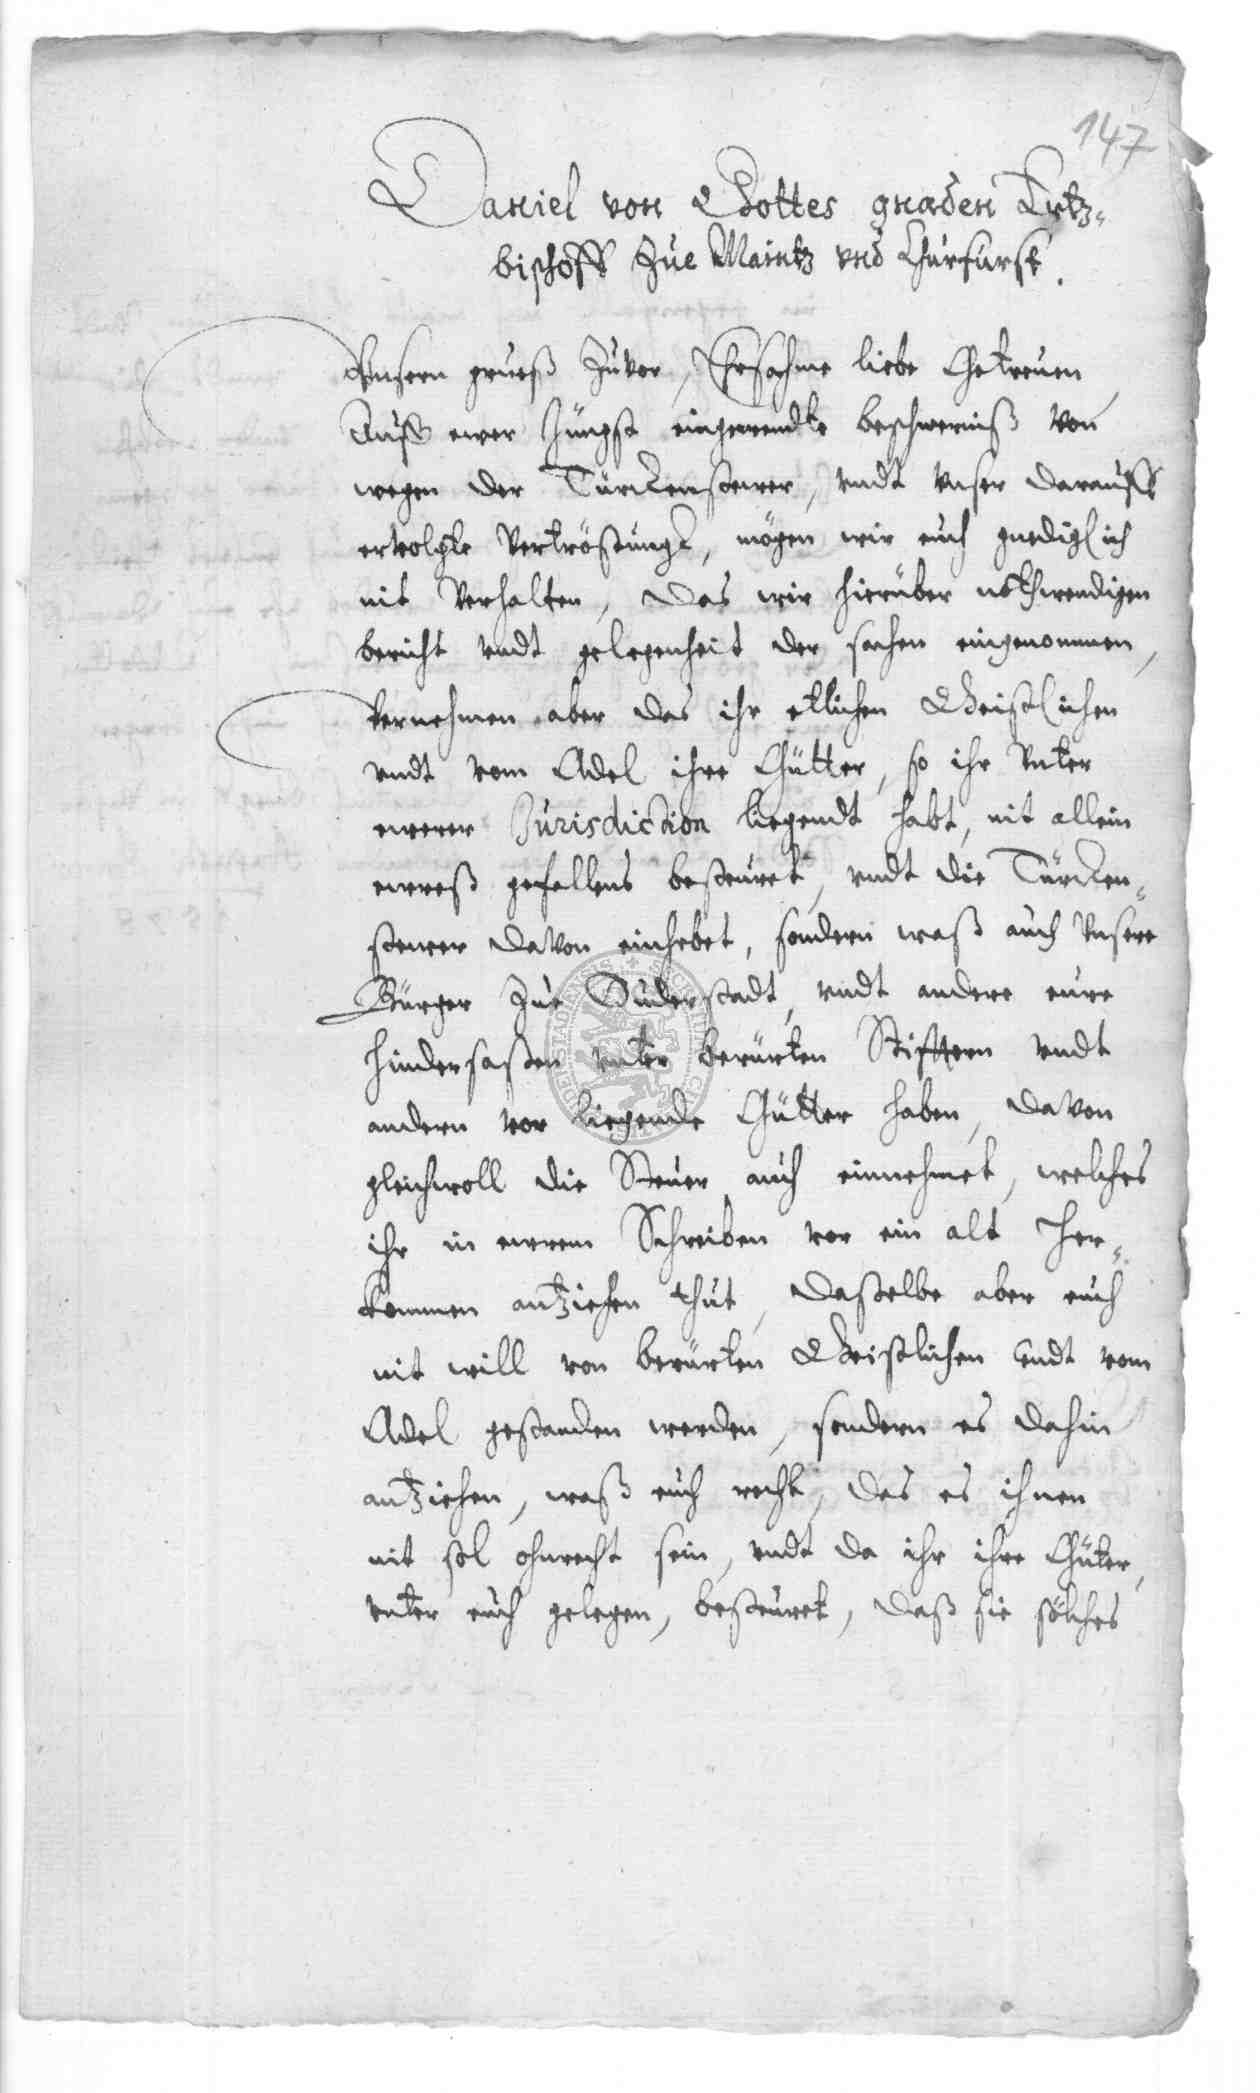 147
Daniel von Gottes gnaden Ertz-
bischoff Zue Maintz vnd Churfurst.
Vnsern grueß Zuvor, Ersahme liebe Getreuen
Auff ewer Jüngst eingewendte beschwerniß von
wegen der Türckenstewer, vndt Vnser darauff
ervolgte Vertröstungk, mögen wir euch gnediglich
nit Verhalten, das wir hierüber nothwendigen
bericht vndt gelegenheit der sachen eingenommen,
Vernehmen aber das ihr etlichen Geistlichen
vndt vom Adel ihre Gütter, so ihr Vnter
ewerer Jurisdiction liegendt habt, nit allein
ewreß gefallens besteuret, vndt die Türcken-
stewer davon einhebet, sondern waß auch Vnsere
Bürger Zue Duderstadt, vndt andere eure
hindersaßen vnter berürten Stifftern vndt
andern vor liegende Gütter haben, davon
gleichwoll die Steuer auch einnehmet, welches
ihr in ewrem Schreiben vor ein alt Her-
kommen antziehen thut, daßelbe aber euch
nit will von berürten Geistlichen vndt vom
Adel gestanden werden, sondern es dahin
antziehen, waß euch recht, das es ihnen
nit sol ohnrecht sein, vndt da ihr ihre Güter,
vnter euch gelegen, besteuret, daß sie solches